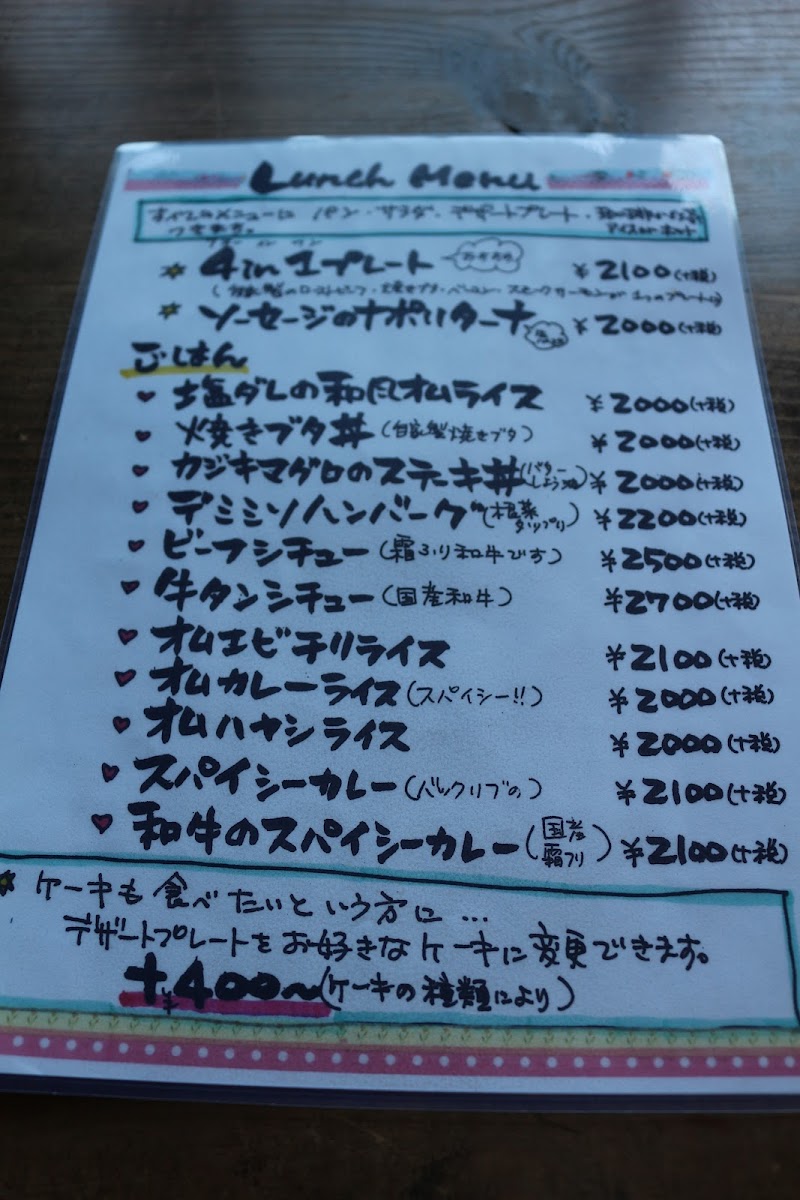 Lunch Menu
すべてのメニューに パン・サラダ・デザートプレート・
つきます。 アイスorホット
フォー イン ワン
4in1プレート おすすめ ¥2100(+税)
(自家製のローストビーフ・焼きブタ・ベーコン・スモークサーモンが1つのプレートに)
ソーセージのナポリターナ ¥2000(+税)
ごはん
塩ダレの和風オムライス ¥2000(+税)
焼きブタ丼(自家製焼きブタ) ¥2000(+税)
カジキマグロのステーキ丼(バターしょう油) ¥2000(+税)
デミミソハンバーグ(根菜タップリ) ¥2200(+税)
ビーフシチュー(霜ふり和牛です) ¥2500(+税)
牛タンシチュー(国産和牛) ¥2700(+税)
オムエビチリライス ¥2100(+税)
オムカレーライス(スパイシー!!) ¥2000(+税)
オムハヤシライス ¥2000(+税)
スパイシーカレー(バックリブの) ¥2100(+税)
和牛のスパイシーカレー(国産霜フリ) ¥2100(+税)
ケーキも食べたいという方に...
デザートプレートをお好きなケーキに変更できます。
+¥400〜(ケーキの種類により)